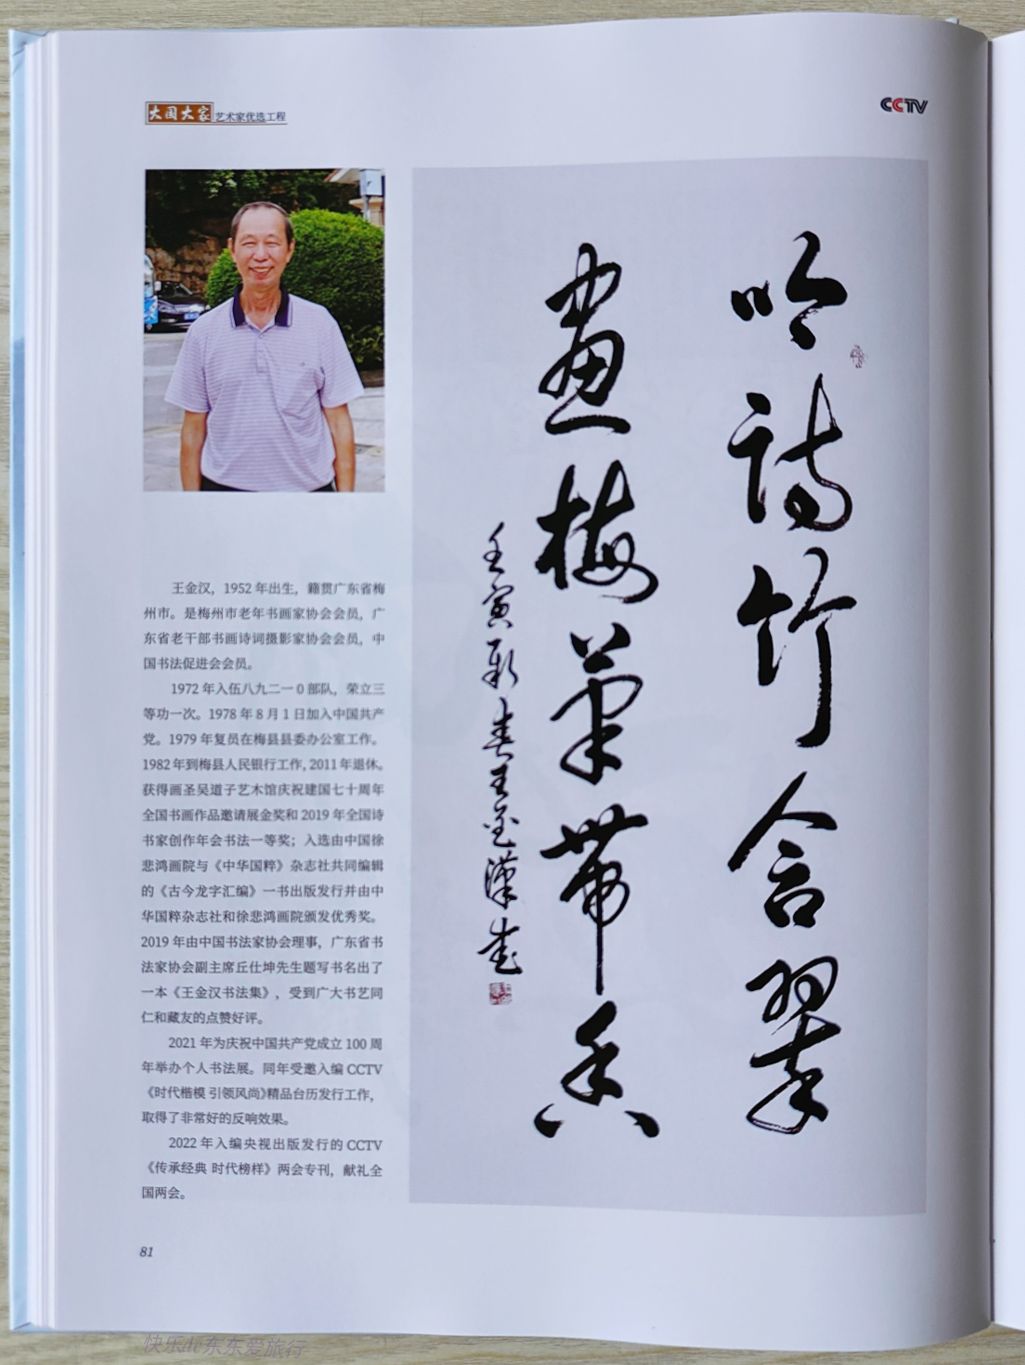 大国大家 艺术家优选工程
CCTV
吟诗竹含翠
画梅笔带香
壬寅新春王金漢书
王金汉，1952 年出生，籍贯广东省梅
州市。是梅州市老年书画家协会会员，广
东省老干部书画诗词摄影家协会会员，中
国书法促进会会员。
1972 年入伍八九二一 0 部队，荣立三
等功一次。1978 年 8 月 1 日加入中国共产
党。1979 年复员在梅县县委办公室工作。
1982 年到梅县人民银行工作, 2011 年退休。
获得画圣吴道子艺术馆庆祝建国七十周年
全国书画作品邀请展金奖和 2019 年全国诗
书家创作年会书法一等奖；入选由中国徐
悲鸿画院与《中华国粹》杂志社共同编辑
的《古今龙字汇编》一书出版发行并由中
华国粹杂志社和徐悲鸿画院颁发优秀奖。
2019 年由中国书法家协会理事，广东省书
法家协会副主席丘仕坤先生题写书名出了
一本《王金汉书法集》，受到广大书艺同
仁和藏友的点赞好评。
2021 年为庆祝中国共产党成立 100 周
年举办个人书法展。同年受邀入编 CCTV
《时代楷模 引领风尚》精品台历发行工作，
取得了非常好的反响效果。
2022 年入编央视出版发行的 CCTV
《传承经典 时代榜样》两会专刊，献礼全
国两会。
81
快乐de东东爱旅行